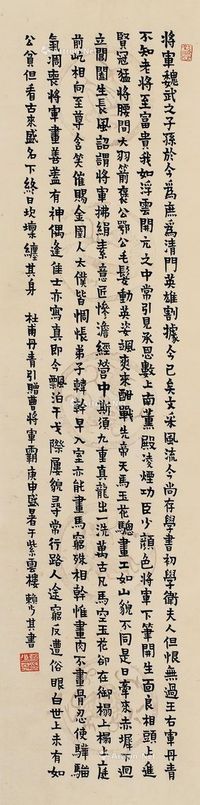 將軍魏武之子孫於今爲庶爲清門英雄割據今已矣文采風流今尚存學書初學衛夫人但恨無過王右軍丹青
不知老將至富貴我如浮雲開元之中常引見承恩數上南薰殿凌煙功臣少顏色將軍下筆開生面良相頭上進
賢冠猛將腰間大羽箭褒公鄂公毛髮動英姿颯爽來酣戰先帝天馬玉花驄畫工如山貌不同是日牽來赤墀下迥
立閶闔生長風詔謂將軍拂絹素意匠慘澹經營中斯須九重真龍出一洗萬古凡馬空玉花卻在御榻上榻上庭
前屹相向至尊含笑催賜金圉人太僕皆惆悵弟子韓幹早入室亦能畫馬窮殊相幹惟畫肉不畫骨忍使驊騮
氣凋喪將軍畫善蓋有神偶逢佳士亦寫真即今飄泊干戈際屢貌尋常行路人途窮反遭俗眼白世上未有如
公貧但看古來盛名下終日坎壈纏其身 杜甫丹青引贈曹將軍霸庚申盛暑于紫雲樓 賴少其書